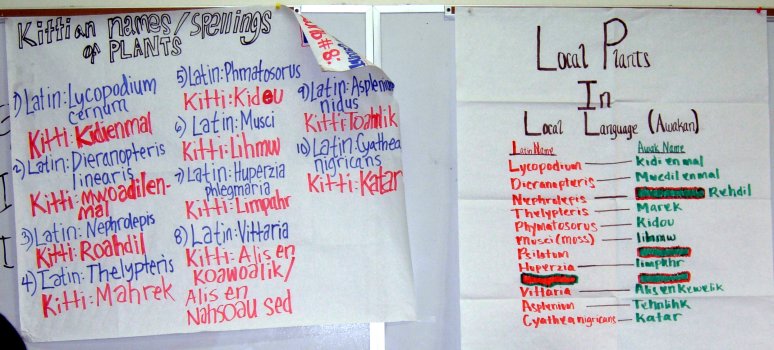 Kittian names/spellings
of PLANTS
1) Latin: Lycopodium
cernum
Kitti: Kidienmal
2) Latin: Dieranopteris
linearis
Kitti: Mwoadilen-
mal
3) Latin: Nephrolepis
Kitti: Roahdil
4) Latin: Thelypteris
Kitti: Mahrek
5) Latin: Phmatosorus
Kitti: Kidou
6) Latin: Musci
Kitti: Lihmw
7) Latin: Huperzia
phlegmaria
Kitti: Limpahr
8) Latin: Vittaria
Kitti: Alis en
Koawoalik/
Alis en
Nahsoau sed
9) Latin: Asplenium
nidus
Kitti: Toahlik
10) Latin: Cyathea
nigricans
Kitti: Katar
Local Plants
In
Local Language (Awakan)
Latin Name Awak Name
Lycopodium kidi en mal
Dieranopteris Mwedil en mal
Nephrolepis Rehdil
Thelypteris Marek
Phymatosorus Kidou
musci (moss) lihmw
Psilotum
Huperzia limpahr
Vittaria Alis en Kewelik
Asplenium Tehnlihk
Cyathea nigricans Katar